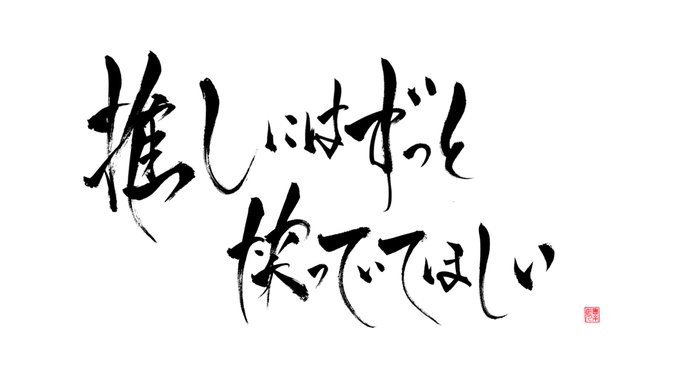 推しにはずっと
笑っていてほしい